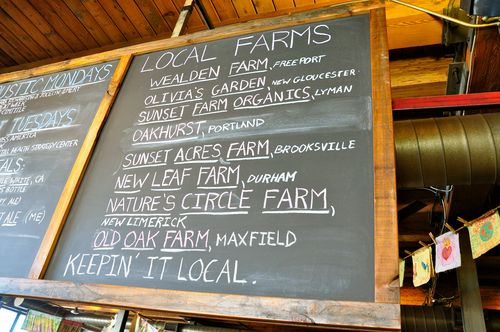 USTIC MONDAYS
TUESDAYS
AMERICA
HEALTH STRATEGY CENTER
ALS:
WHITE, CA
BOTTLE
ALE (ME)
LOCAL FARMS
WEALDEN FARM, FREEPORT
OLIVIA'S GARDEN NEW GLOUCESTER
SUNSET FARM ORGANICS, LYMAN
OAKHURST, PORTLAND
SUNSET ACRES FARM, BROOKSVILLE
NEW LEAF FARM, DURHAM
NATURE'S CIRCLE FARM,
NEW LIMERICK
OLD OAK FARM, MAXFIELD
KEEPIN' IT LOCAL.